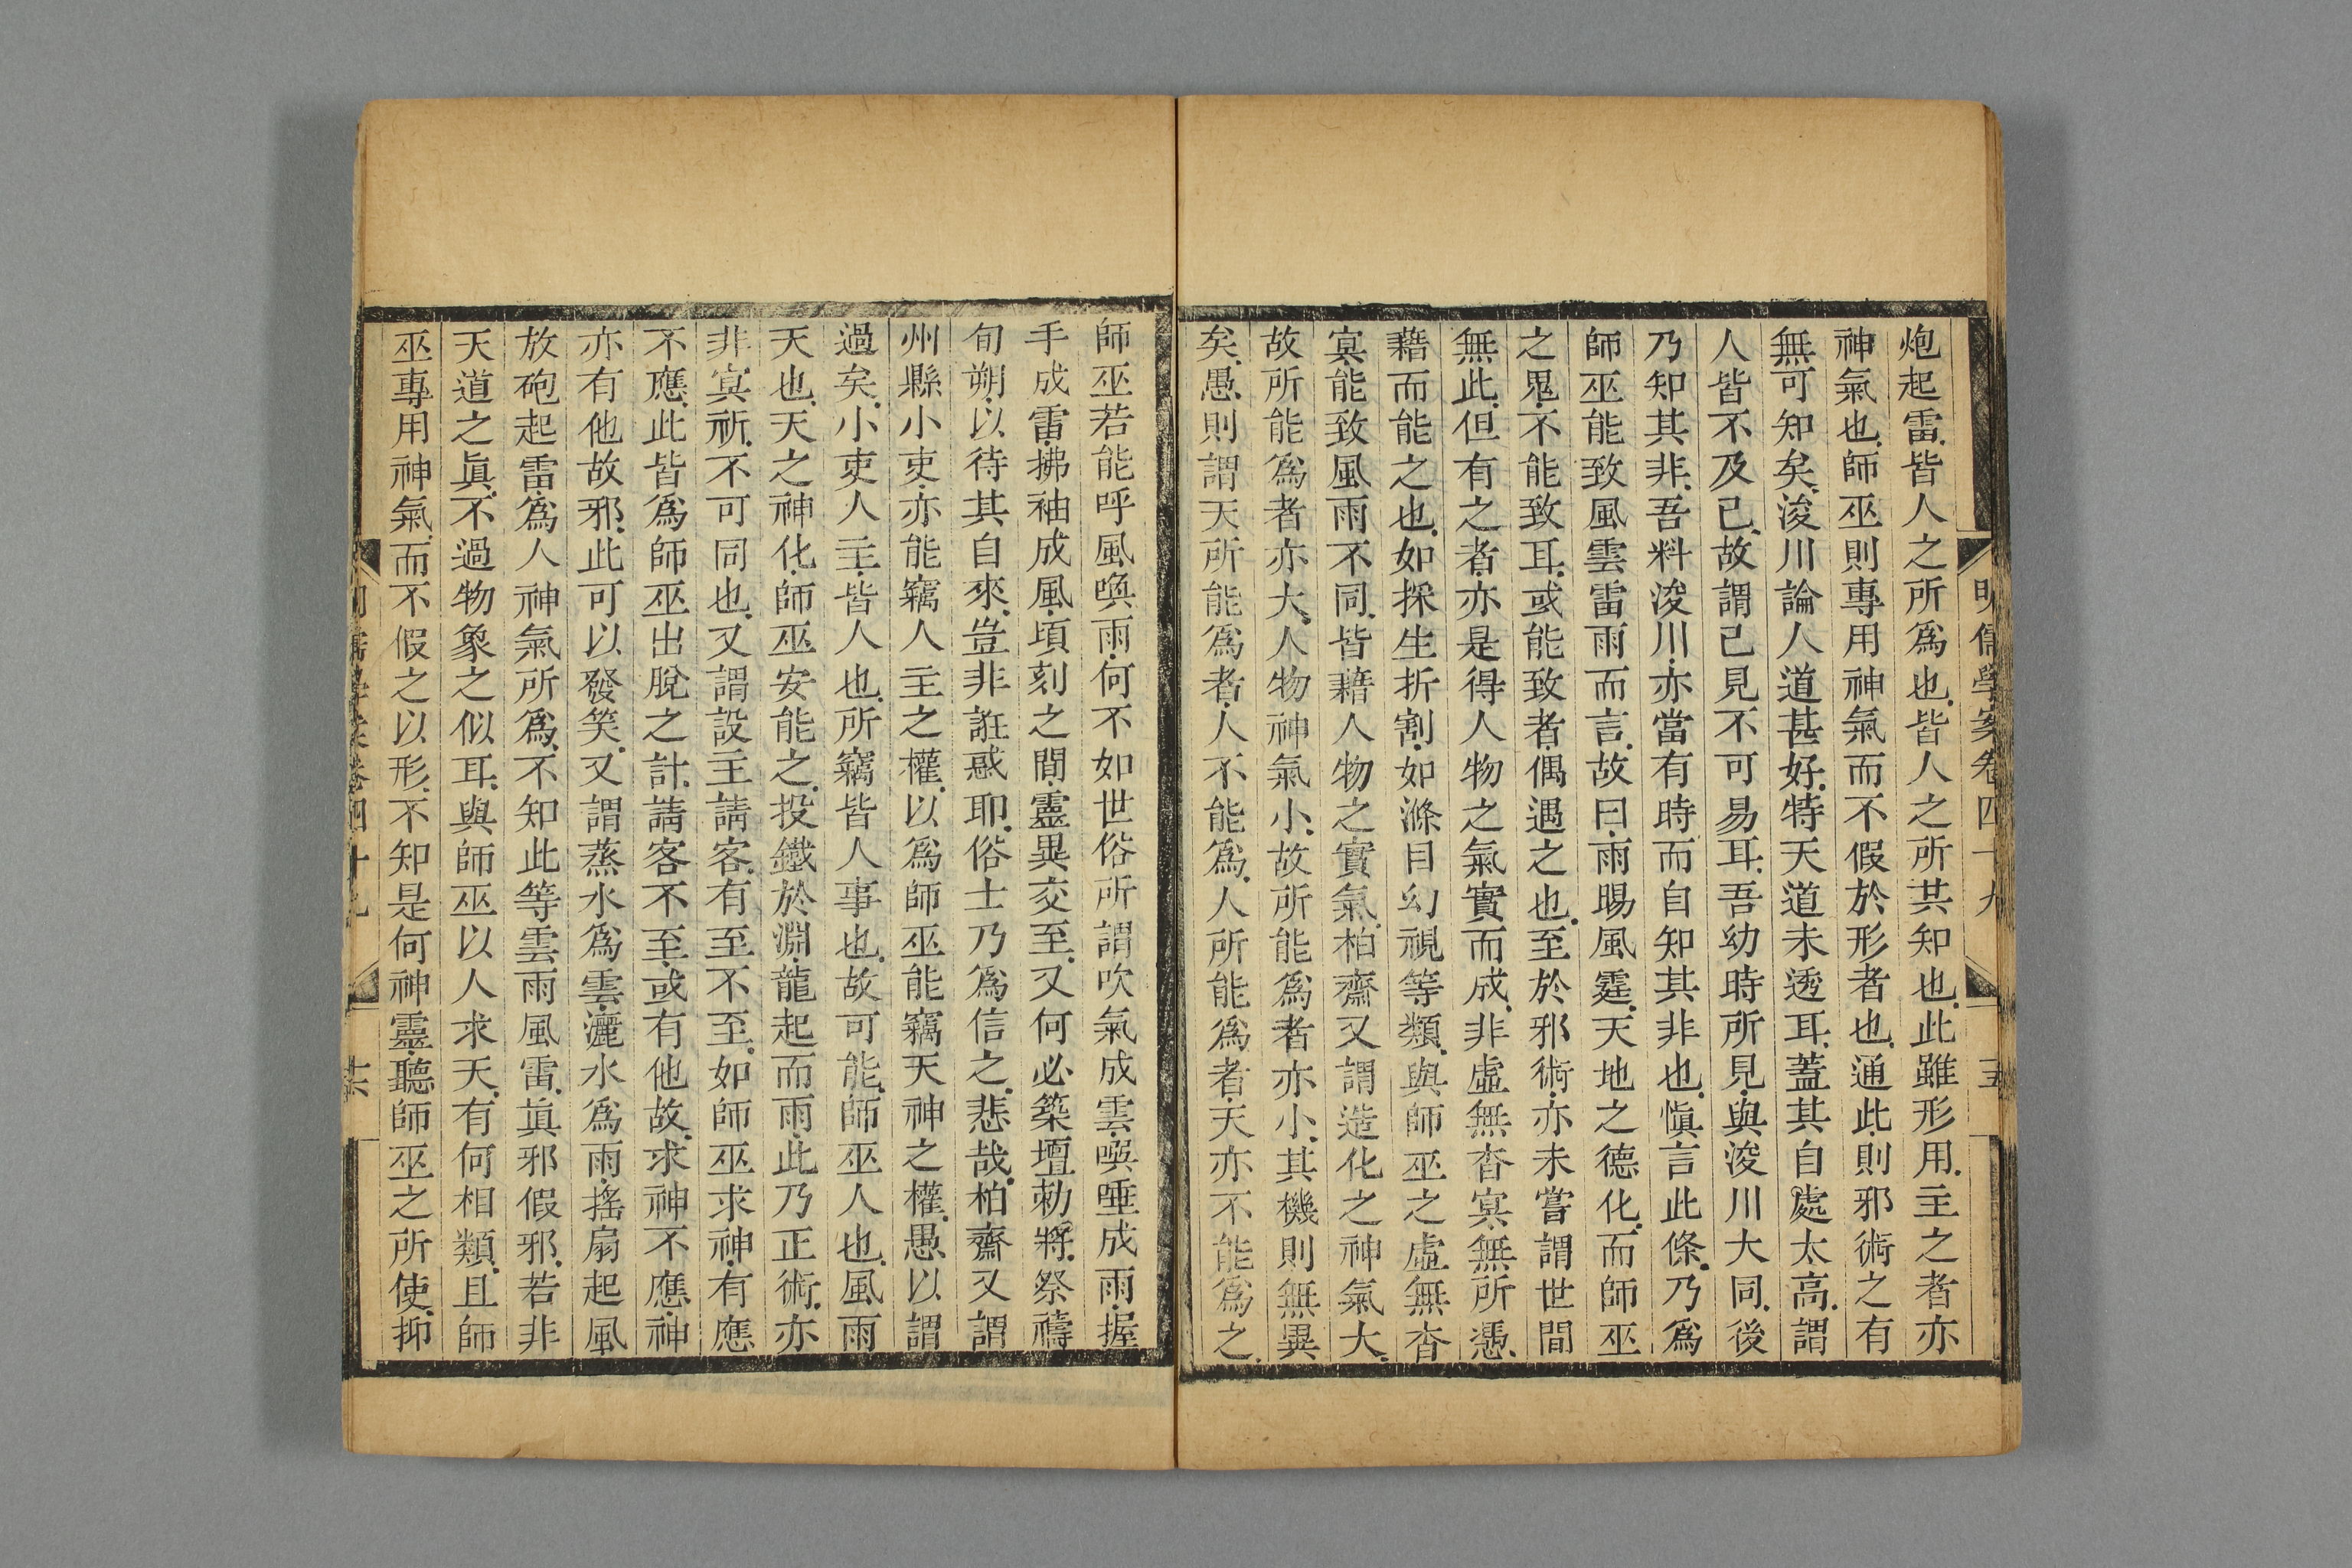 明儒學案卷四十九
炮起雷皆人之所爲也皆人之所其知也此雖形用主之者亦
神氣也師巫則專用神氣而不假於形者也通此則邪術之有
無可知矣浚川論人道甚好特天道未透耳蓋其自處太高謂
人皆不及己故謂己見不可易耳吾幼時所見與浚川大同後
乃知其非吾料浚川亦當有時而自知其非也愼言此條乃爲
師巫能致風雲雷雨而言故曰雨暘風霆天地之德化而師巫
之鬼不能致耳或能致者偶遇之也至於邪術亦未嘗謂世間
無此但有之者亦是得人物之氣實而成非虛無杳冥無所憑
藉而能之也如採生折割如滌目幻視等類與師巫之虛無杳
冥能致風雨不同皆藉人物之實氣柏齋又謂造化之神氣大
故所能爲者亦大人物神氣小故所能爲者亦小其機則無異
矣愚則謂天所能爲者人不能爲人所能爲者天亦不能爲之
師巫若能呼風喚雨何不如世俗所謂吹氣成雲噀唾成雨握
手成雷拂袖成風頃刻之間靈異交至又何必築壇勅將祭禱
旬朔以待其自來豈非誑惑耶俗士乃爲信之悲哉柏齋又謂
州縣小吏亦能竊人主之權以爲師巫能竊天神之權愚以謂
過矣小吏人主皆人也所竊皆人事也故可能師巫人也風雨
天也天之神化師巫安能之投鐵於淵龍起而雨此乃正術亦
非冥祈不可同也又謂設主請客有至不至如師巫求神有應
不應此皆爲師巫出脫之計請客不至或有他故求神不應神
亦有他故邪此可以發笑又謂蒸水爲雲灑水爲雨搖扇起風
放砲起雷爲人神氣所爲不知此等雲雨風雷眞邪假邪若非
天道之眞不過物象之似耳與師巫以人求天有何相類且師
巫專用神氣而不假之以形不知是何神靈聽師巫之所使抑